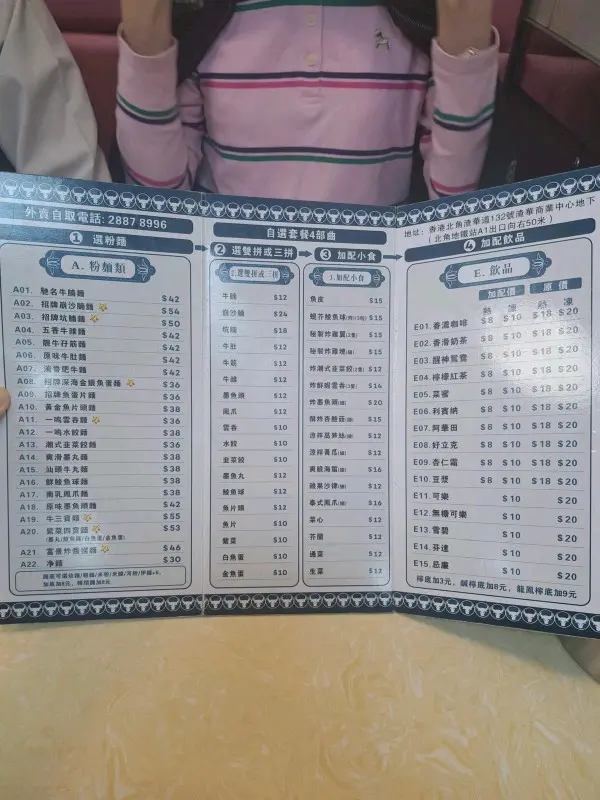 外賣自取電話: 2887 8996
自選套餐4部曲
地址: 香港北角渣華道132號渣華商業中心地下
(北角地鐵站A1出口向右50米)
1 選粉麵
2 選雙拼或三拼
3 加配小食
4 加配飲品
A. 粉麵類
A01. 馳名牛腩麵 $42
A02. 招牌崩沙腩麵 $54
A03. 招牌坑腩麵 $50
A04. 五香牛𦟌麵 $42
A05. 靚牛仔筋麵 $42
A06. 原味牛肚麵 $42
A07. 滾滑肥牛麵 $42
A08. 招牌深海金鑲魚蛋麵 $36
A09. 招牌魚蛋片麵 $36
A10. 黃金魚片頭麵 $38
A11. 一鳴雲吞麵 $36
A12. 一鳴水餃麵 $38
A13. 潮式韭菜餃麵 $36
A14. 爽滑墨丸麵 $38
A15. 汕頭牛丸麵 $38
A16. 鮮鯪魚球麵 $38
A17. 南乳鳳爪麵 $38
A18. 原味墨魚頭麵 $42
A19. 牛三寶麵 $55
A20. 紫菜四寶麵 $53
(墨丸/鯪魚球/白魚蛋/金魚蛋)
A21. 富豪炸醬撈麵 $46
A22. 淨麵 $30
2.選雙拼或三拼
牛腩 $12
崩沙腩 $24
坑腩 $18
牛肚 $12
牛筋 $12
牛𦟌 $12
墨魚頭 $12
鳳爪 $12
雲吞 $10
水餃 $10
韭菜餃 $10
墨魚丸 $12
鯪魚球 $12
魚片頭 $12
魚片 $10
紫菜 $10
白魚蛋 $10
金魚蛋 $10
3.加配小食
魚皮 $15
蜆芥鯪魚球 $15
秘製炸雞翼 $15
秘製炸雞塊 $15
炸潮式韭菜餃 $12
炸鮮蝦雲吞 $14
炸墨魚頭 $20
酥炸杏鮑菇 $15
涼拌萵筍絲 $12
涼拌青瓜 $12
爽脆海蜇 $16
蘋果沙律 $12
泰式鳳爪 $16
菜心 $12
芥蘭 $12
通菜 $12
生菜 $12
E. 飲品
加配價 原價
熱 凍 熱 凍
E01. 香濃咖啡 $8 $10 $18 $20
E02. 香滑奶茶 $8 $10 $18 $20
E03. 醒神鴛鴦 $8 $10 $18 $20
E04. 檸檬紅茶 $8 $10 $18 $20
E05. 菜蜜 $8 $10 $18 $20
E06. 利賓納 $8 $10 $18 $20
E07. 阿華田 $8 $10 $18 $20
E08. 好立克 $8 $10 $18 $20
E09. 杏仁霜 $8 $10 $18 $20
E10. 豆漿 $8 $10 $18 $20
E11. 可樂 $10 $20
E12. 無糖可樂 $10 $20
E13. 雪碧 $10 $20
E14. 芬達 $10 $20
E15. 忌廉 $10 $20
檸底加3元, 鹹檸底加8元, 龍鳳檸底加9元